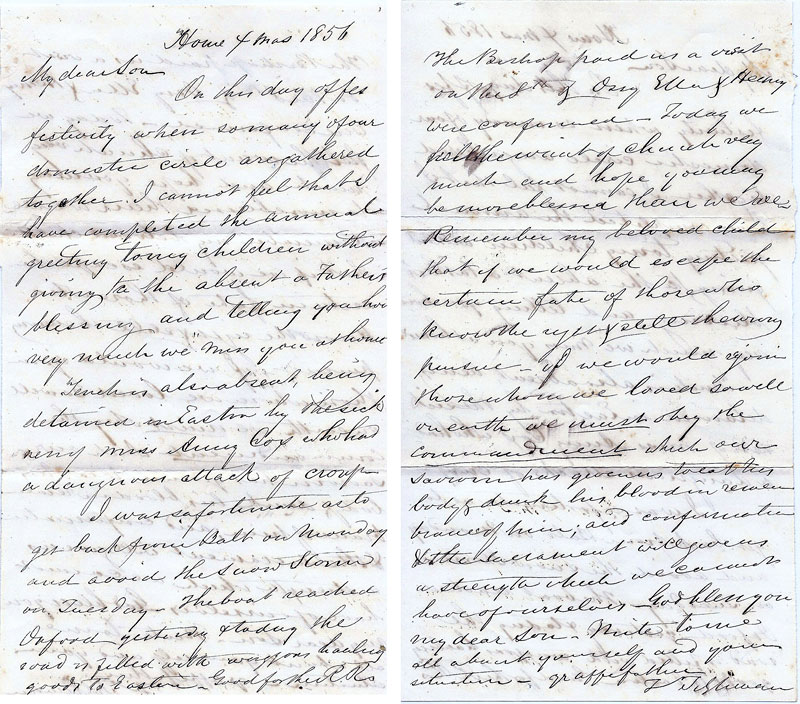 Home Xmas 1856
My dear Son
On this day of fes
festivity when so many of our
domestic circle are gathered
together I cannot feel that I
have completed the annual
greeting to my children without
giving to the absent a Fathers
blessing and telling you how
very much we miss you at home
Tench is also absent, being
detained in Easton by the sick
Miss Anny Cox who had
a dangerous attack of croup
I was so fortunate as to
get back from Balt on Monday
and avoid the Snow Storm
on Tuesday - The boat reached
Oxford yesterday & today the
road is filled with waggons hauling
goods to Easton - Good for the R.Rs
The Bishop paid us a visit
on the & Ella & Henny
were confirmed - Today we
felt the want of church very
much and hope you may
be more blessed than we are
Remember my beloved child
that if we would escape the
certain fate of those who
know the right & still the wrong
pursue - if we would rejoin
those whom we loved so well
on earth we must obey the
commandment which our
Saviour has given us to eat his
body & drink his blood in remem
brance of him; and confirmation
& the Sacrament will give us
a strength which we cannot
have of ourselves - God bless you
my dear Son - Write to me
all about yourself and your
situation - father
T Tilghman